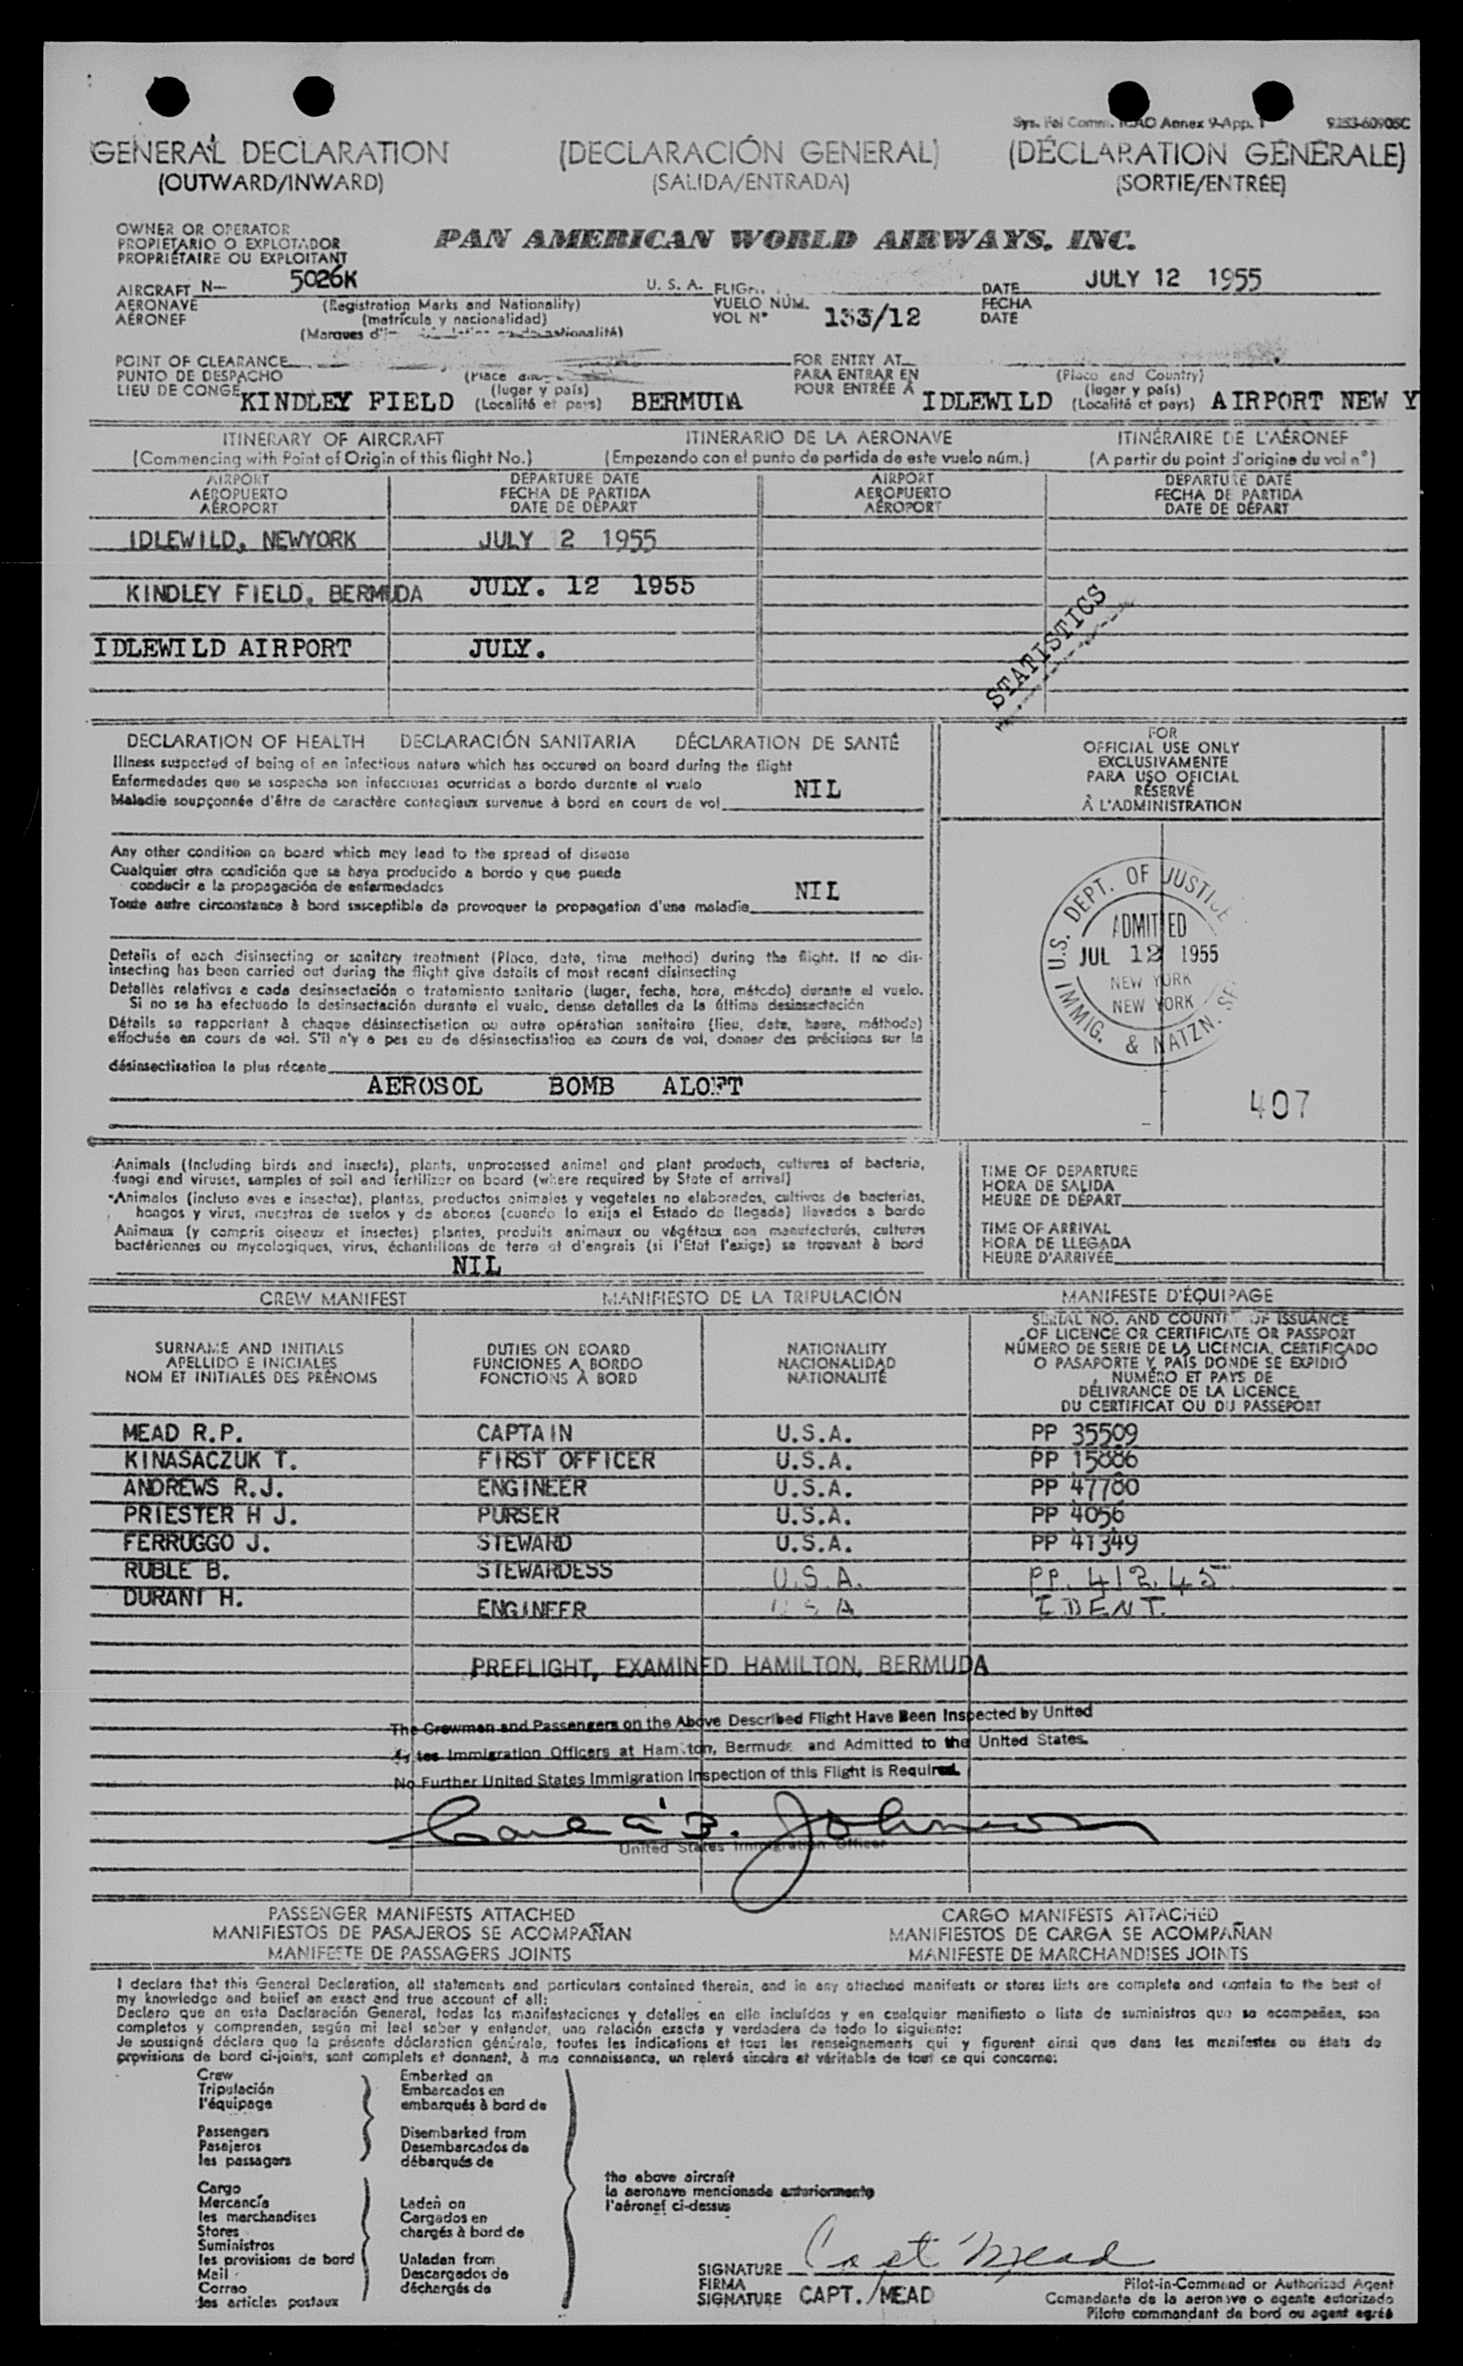 Annex 9-App. 1
GENERAL DECLARATION (DECLARACIÓN GENERAL) (DÉCLARATION GÉNÉRALE)
(OUTWARD/INWARD) (SALIDA/ENTRADA) (SORTIE/ENTRÉE)
OWNER OR OPERATOR
PROPIETARIO O EXPLOTADOR
PROPRIÉTAIRE OU EXPLOITANT
PAN AMERICAN WORLD AIRWAYS, INC.
AIRCRAFT N— 5026K U. S. A.
AERONAVE (Registration Marks and Nationality)
AÉRONEF (matrícula y nacionalidad)
(Marques
VUELO NÚM.
VOL N° 133/12
DATE JULY 12 1955
FECHA
DATE
POINT OF CLEARANCE
PUNTO DE DESPACHO (Place
LIEU DE CONGÉ KINDLEY FIELD (lugar y país) (Localité et pays) BERMUDA
FOR ENTRY AT
PARA ENTRAR EN (Place and Country)
POUR ENTRÉE À IDLEWILD (lugar y país) (Localité et pays) AIRPORT NEW Y
ITINERARY OF AIRCRAFT ITINERARIO DE LA AERONAVE ITINÉRAIRE DE L'AÉRONEF
(Commencing with Point of Origin of this flight No.) (Empezando con el punto de partida de este vuelo núm.) (A partir du point d'origine du vol n°)
AIRPORT DEPARTURE DATE AIRPORT DEPARTURE DATE
AEROPUERTO FECHA DE PARTIDA AEROPUERTO FECHA DE PARTIDA
AÉROPORT DATE DE DÉPART AÉROPORT DATE DE DÉPART
IDLEWILD, NEWYORK JULY 2 1955
KINDLEY FIELD, BERMUDA JULY. 12 1955
IDLEWILD AIRPORT JULY.
STATISTICS
DECLARATION OF HEALTH DECLARACIÓN SANITARIA DÉCLARATION DE SANTÉ
Illness suspected of being of an infectious nature which has occured on board during the flight
Enfermedades que se sospecha son infecciosas ocurridas a bordo durante el vuelo NIL
Maladie soupçonnée d'être de caractère contagieux survenue à bord en cours de vol
Any other condition on board which may lead to the spread of disease
Cualquier otra condición que se haya producido a bordo y que pueda
conducir a la propagación de enfermedades NIL
Toute autre circonstance à bord susceptible de provoquer la propagation d'une maladie
Details of each disinsecting or sanitary treatment (Place, date, time method) during the flight. If no dis-
insecting has been carried out during the flight give details of most recent disinsecting
Detalles relativos a cada desinsectación o tratamiento sanitario (lugar, fecha, hora, método) durante el vuelo.
Si no se ha efectuado la desinsectación durante el vuelo, dense detalles de la última desinsectación
Détails se rapportant à chaque désinsectisation ou autre opération sanitaire (lieu, date, heure, méthode)
effectuée en cours de vol. S'il n'y a pas eu de désinsectisation en cours de vol, donner des précisions sur la
désinsectisation la plus récente
AEROSOL BOMB ALOFT
FOR
OFFICIAL USE ONLY
EXCLUSIVAMENTE
PARA USO OFICIAL
RÉSERVÉ
À L'ADMINISTRATION
U.S. DEPT. OF JUSTICE
ADMITTED
JUL 12 1955
NEW YORK
NEW YORK
IMMIG. & NATZN.
407
Animals (Including birds and insects), plants, unprocessed animal and plant products, cultures of bacteria,
fungi and viruses, samples of soil and fertilizer on board (where required by State of arrival)
Animales (incluso aves e insectos), plantas, productos animales y vegetales no elaborados, cultivos de bacterias,
hongos y virus, muestras de suelos y de abonos (cuando lo exija el Estado de llegada) llevados a bordo
Animaux (y compris oiseaux et insectes) plantes, produits animaux ou végétaux non manufacturés, cultures
bactériennes ou mycologiques, virus, échantillons de terre et d'engrais (si l'Etat l'exige) se trouvant à bord
NIL
TIME OF DEPARTURE
HORA DE SALIDA
HEURE DE DÉPART
TIME OF ARRIVAL
HORA DE LLEGADA
HEURE D'ARRIVÉE
CREW MANIFEST MANIFIESTO DE LA TRIPULACIÓN MANIFESTE D'ÉQUIPAGE
SURNAME AND INITIALS
APELLIDO E INICIALES
NOM ET INITIALES DES PRÉNOMS
DUTIES ON BOARD
FUNCIONES A BORDO
FONCTIONS À BORD
NATIONALITY
NACIONALIDAD
NATIONALITÉ
SERIAL NO. AND COUNTRY OF ISSUANCE
OF LICENCE OR CERTIFICATE OR PASSPORT
NÚMERO DE SERIE DE LA LICENCIA, CERTIFICADO
O PASAPORTE Y PAÍS DONDE SE EXPIDIÓ
NUMÉRO ET PAYS DE
DÉLIVRANCE DE LA LICENCE
DU CERTIFICAT OU DU PASSEPORT
MEAD R.P. CAPTAIN U.S.A. PP 35509
KINASACZUK T. FIRST OFFICER U.S.A. PP 15886
ANDREWS R.J. ENGINEER U.S.A. PP 47780
PRIESTER H J. PURSER U.S.A. PP 4056
FERRUGGO J. STEWARD U.S.A. PP 41349
RUBLE B. STEWARDESS U.S.A. PP. 41245
DURANT H. ENGINEER U S A IDENT.
PREFLIGHT, EXAMINED HAMILTON, BERMUDA
The Crewmen and Passengers on the Above Described Flight Have Been Inspected by United
States Immigration Officers at Hamilton, Bermuda and Admitted to the United States.
No Further United States Immigration Inspection of this Flight is Required.
B. Johnson
United States Immigration Officer
PASSENGER MANIFESTS ATTACHED CARGO MANIFESTS ATTACHED
MANIFIESTOS DE PASAJEROS SE ACOMPAÑAN MANIFIESTOS DE CARGA SE ACOMPAÑAN
MANIFESTE DE PASSAGERS JOINTS MANIFESTE DE MARCHANDISES JOINTS
I declare that this General Declaration, all statements and particulars contained therein, and in any attached manifests or stores lists are complete and contain to the best of
my knowledge and belief an exact and true account of all:
Declaro que en esta Declaración General, todas las manifestaciones y detalles en ella incluídos y en cualquier manifiesto o lista de suministros que se acompañen, son
completos y comprenden, según mi leal saber y entender, una relación exacta y verdadera de todo lo siguiente:
Je soussigné déclare que la présente déclaration générale, toutes les indications et tous les renseignements qui y figurent ainsi que dans les manifestes ou états de
provisions de bord ci-joints, sont complets et donnent, à ma connaissance, un relevé sincère et véritable de tout ce qui concerne:
Crew Embarked on
Tripulación Embarcados en
l'équipage embarqués à bord de
Passengers Disembarked from
Pasajeros Desembarcados de
les passagers débarqués de
the above aircraft
la aeronave mencionada anteriormente
l'aéronef ci-dessus
Cargo
Mercancía Laden on
les marchandises Cargados en
Stores chargés à bord de
Suministros
les provisions de bord Unladen from
Mail Descargados de
Correo déchargés de
les articles postaux
SIGNATURE Capt Mead
FIRMA
SIGNATURE CAPT. MEAD
Pilot-in-Command or Authorized Agent
Comandante de la aeronave o agente autorizado
Pilote commandant de bord ou agent agréé